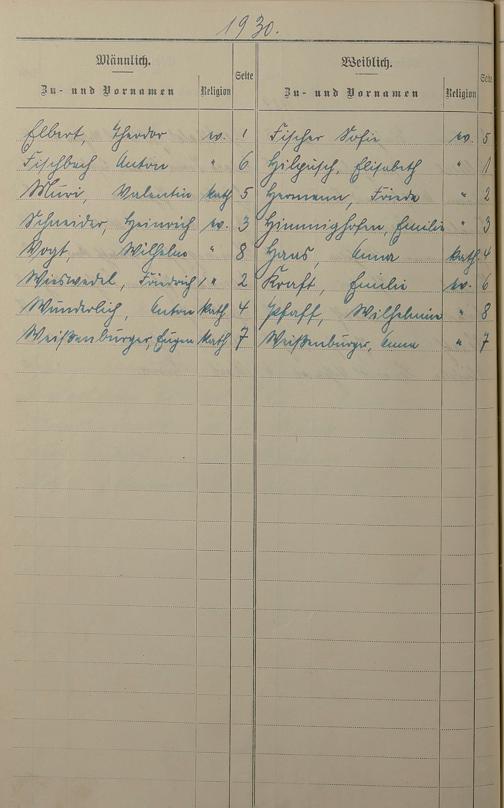 1930.
Männlich. Weiblich.
Zu- und Vornamen Religion Seite Zu- und Vornamen Religion Seite
Elbert, Theodor ev. 1 Fischer Sofie ev. 5
Fischbach Anton " 6 Hilpüsch, Elisabeth " 1
Muri, Valentin kath 5 Hermann, Friede " 2
Schneider, Heinrich ev. 3 Himmighofen, Emilie " 3
Vogt, Wilhelm " 8 Haas, Anna kath 4
Wieswedel, Friedrich " 2 Kraft, Emilie ev. 6
Wunderlich, Anton kath 4 Pfaff, Wilhelmine " 8
Weißenburger, Eugen kath 7 Weißenburger, Anna " 7